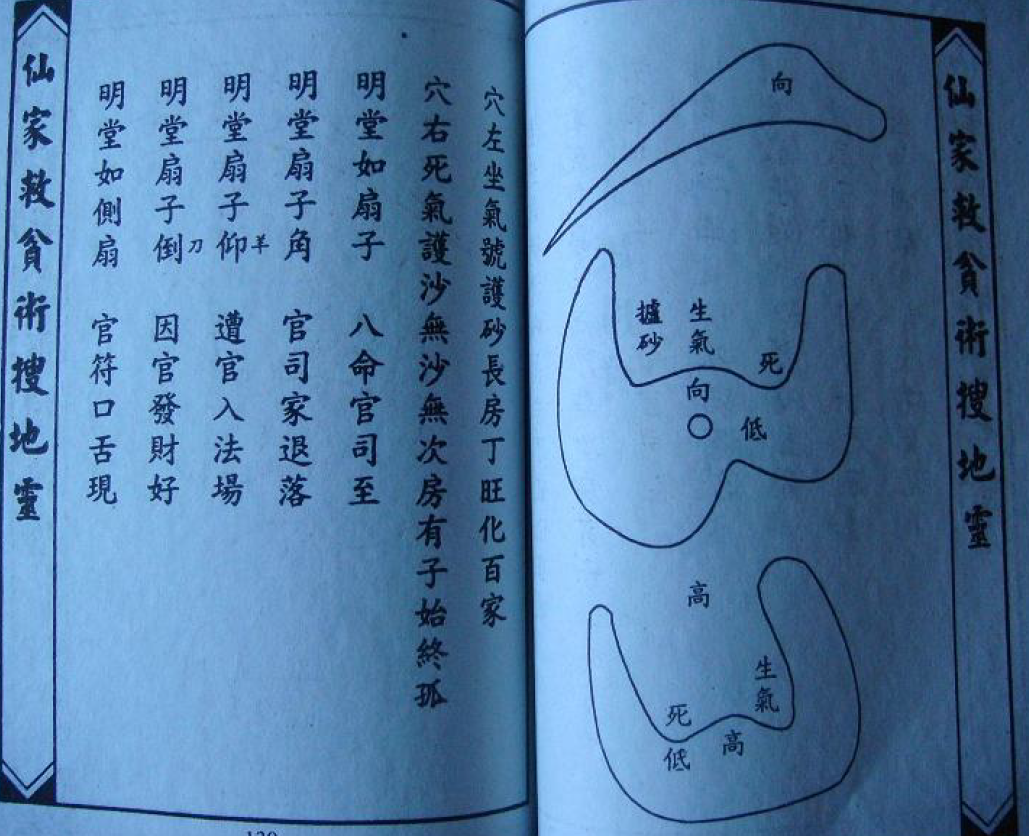 仙家救貧術搜地靈
向
生氣
攎砂
死
向
低
高
生氣
死
高
低
穴左坐氣號護砂長房丁旺化百家
穴右死氣護沙無沙無次房有子始終孤
明堂如扇子 八命官司至
明堂扇子角 官司家退落
明堂扇子仰羊 遭官入法場
明堂扇子倒刀 因官發財好
明堂如側扇 官符口舌現
仙家救貧術搜地靈